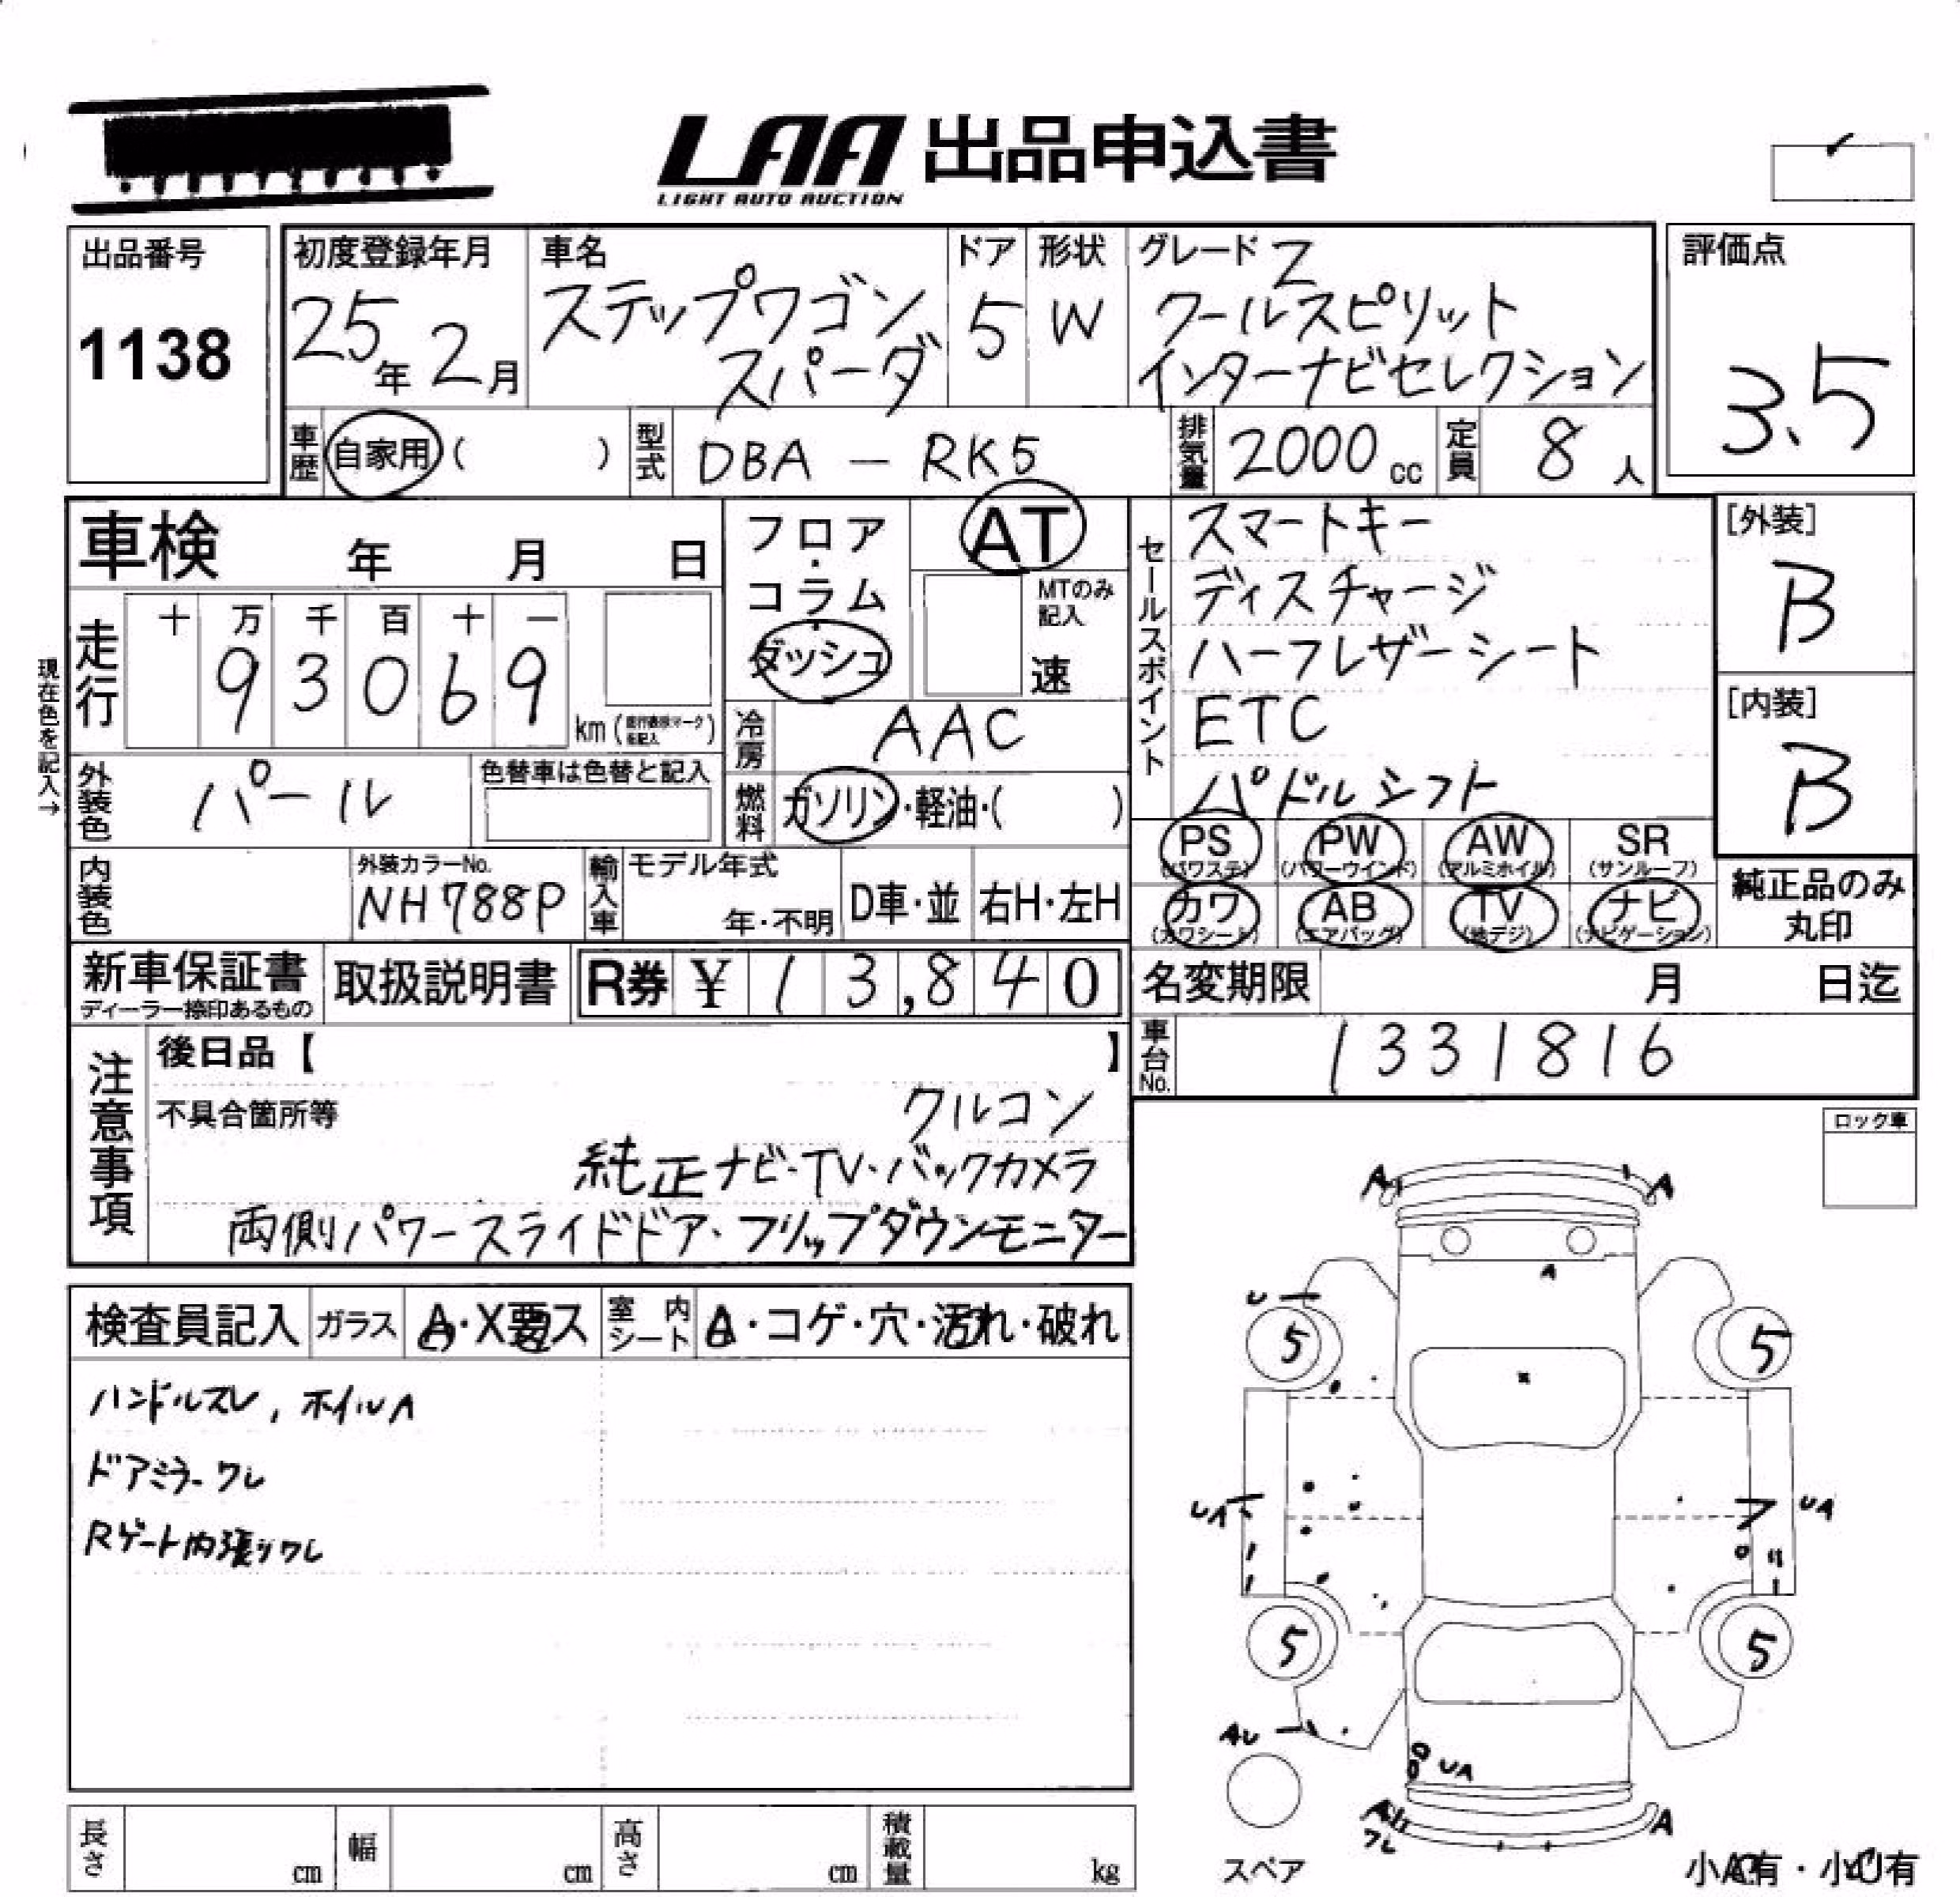 LAA 出品申込書
LIGHT AUTO AUCTION
出品番号
1138
初度登録年月
25年 2月
車名
ステップワゴン
スパーダ
ドア
5
形状
W
グレード Z
クールスピリット
インターナビセレクション
評価点
3.5
車歴 自家用 ( )
型式 DBA - RK5
排気量 2000 cc
定員 8 人
車検 年 月 日
走行
十 万 千 百 十 一
9 3 0 6 9
km ( )
現在色を記入→
外装色 パール
色替車は色替と記入
内装色
外装カラーNo.
NH788P
フロア・コラム・ダッシュ
AT
MTのみ記入
速
冷房 AAC
燃料 ガソリン・軽油・( )
輸入車
モデル年式
年・不明
D車・並
右H・左H
セールスポイント
スマートキー
ディスチャージ
ハーフレザーシート
ETC
パドルシフト
[外装]
B
[内装]
B
PS (パワステ)
PW (パワーウインド)
AW (アルミホイル)
SR (サンルーフ)
カワ (カワシート)
AB (エアバッグ)
TV (地デジ)
ナビ (ナビゲーション)
純正品のみ
丸印
新車保証書
ディーラー捺印あるもの
取扱説明書
R券 ¥ 13,840
名変期限 月 日迄
車台No. 1331816
注意事項
後日品【 】
不具合箇所等
クルコン
純正ナビ・TV・バックカメラ
両側パワースライドドア・フリップダウンモニター
ロック車
検査員記入
ガラス A・X要ス
室内シート A・コゲ・穴・汚れ・破れ
ハンドルスレ, ホイルA
ドアミラーワレ
Rゲート内張りワレ
A A
A
U
5 5
UA UA
5 5
AU
UA
A
ワレ
A
スペア
小A有・小U有
長さ cm
幅 cm
高さ cm
積載量 kg